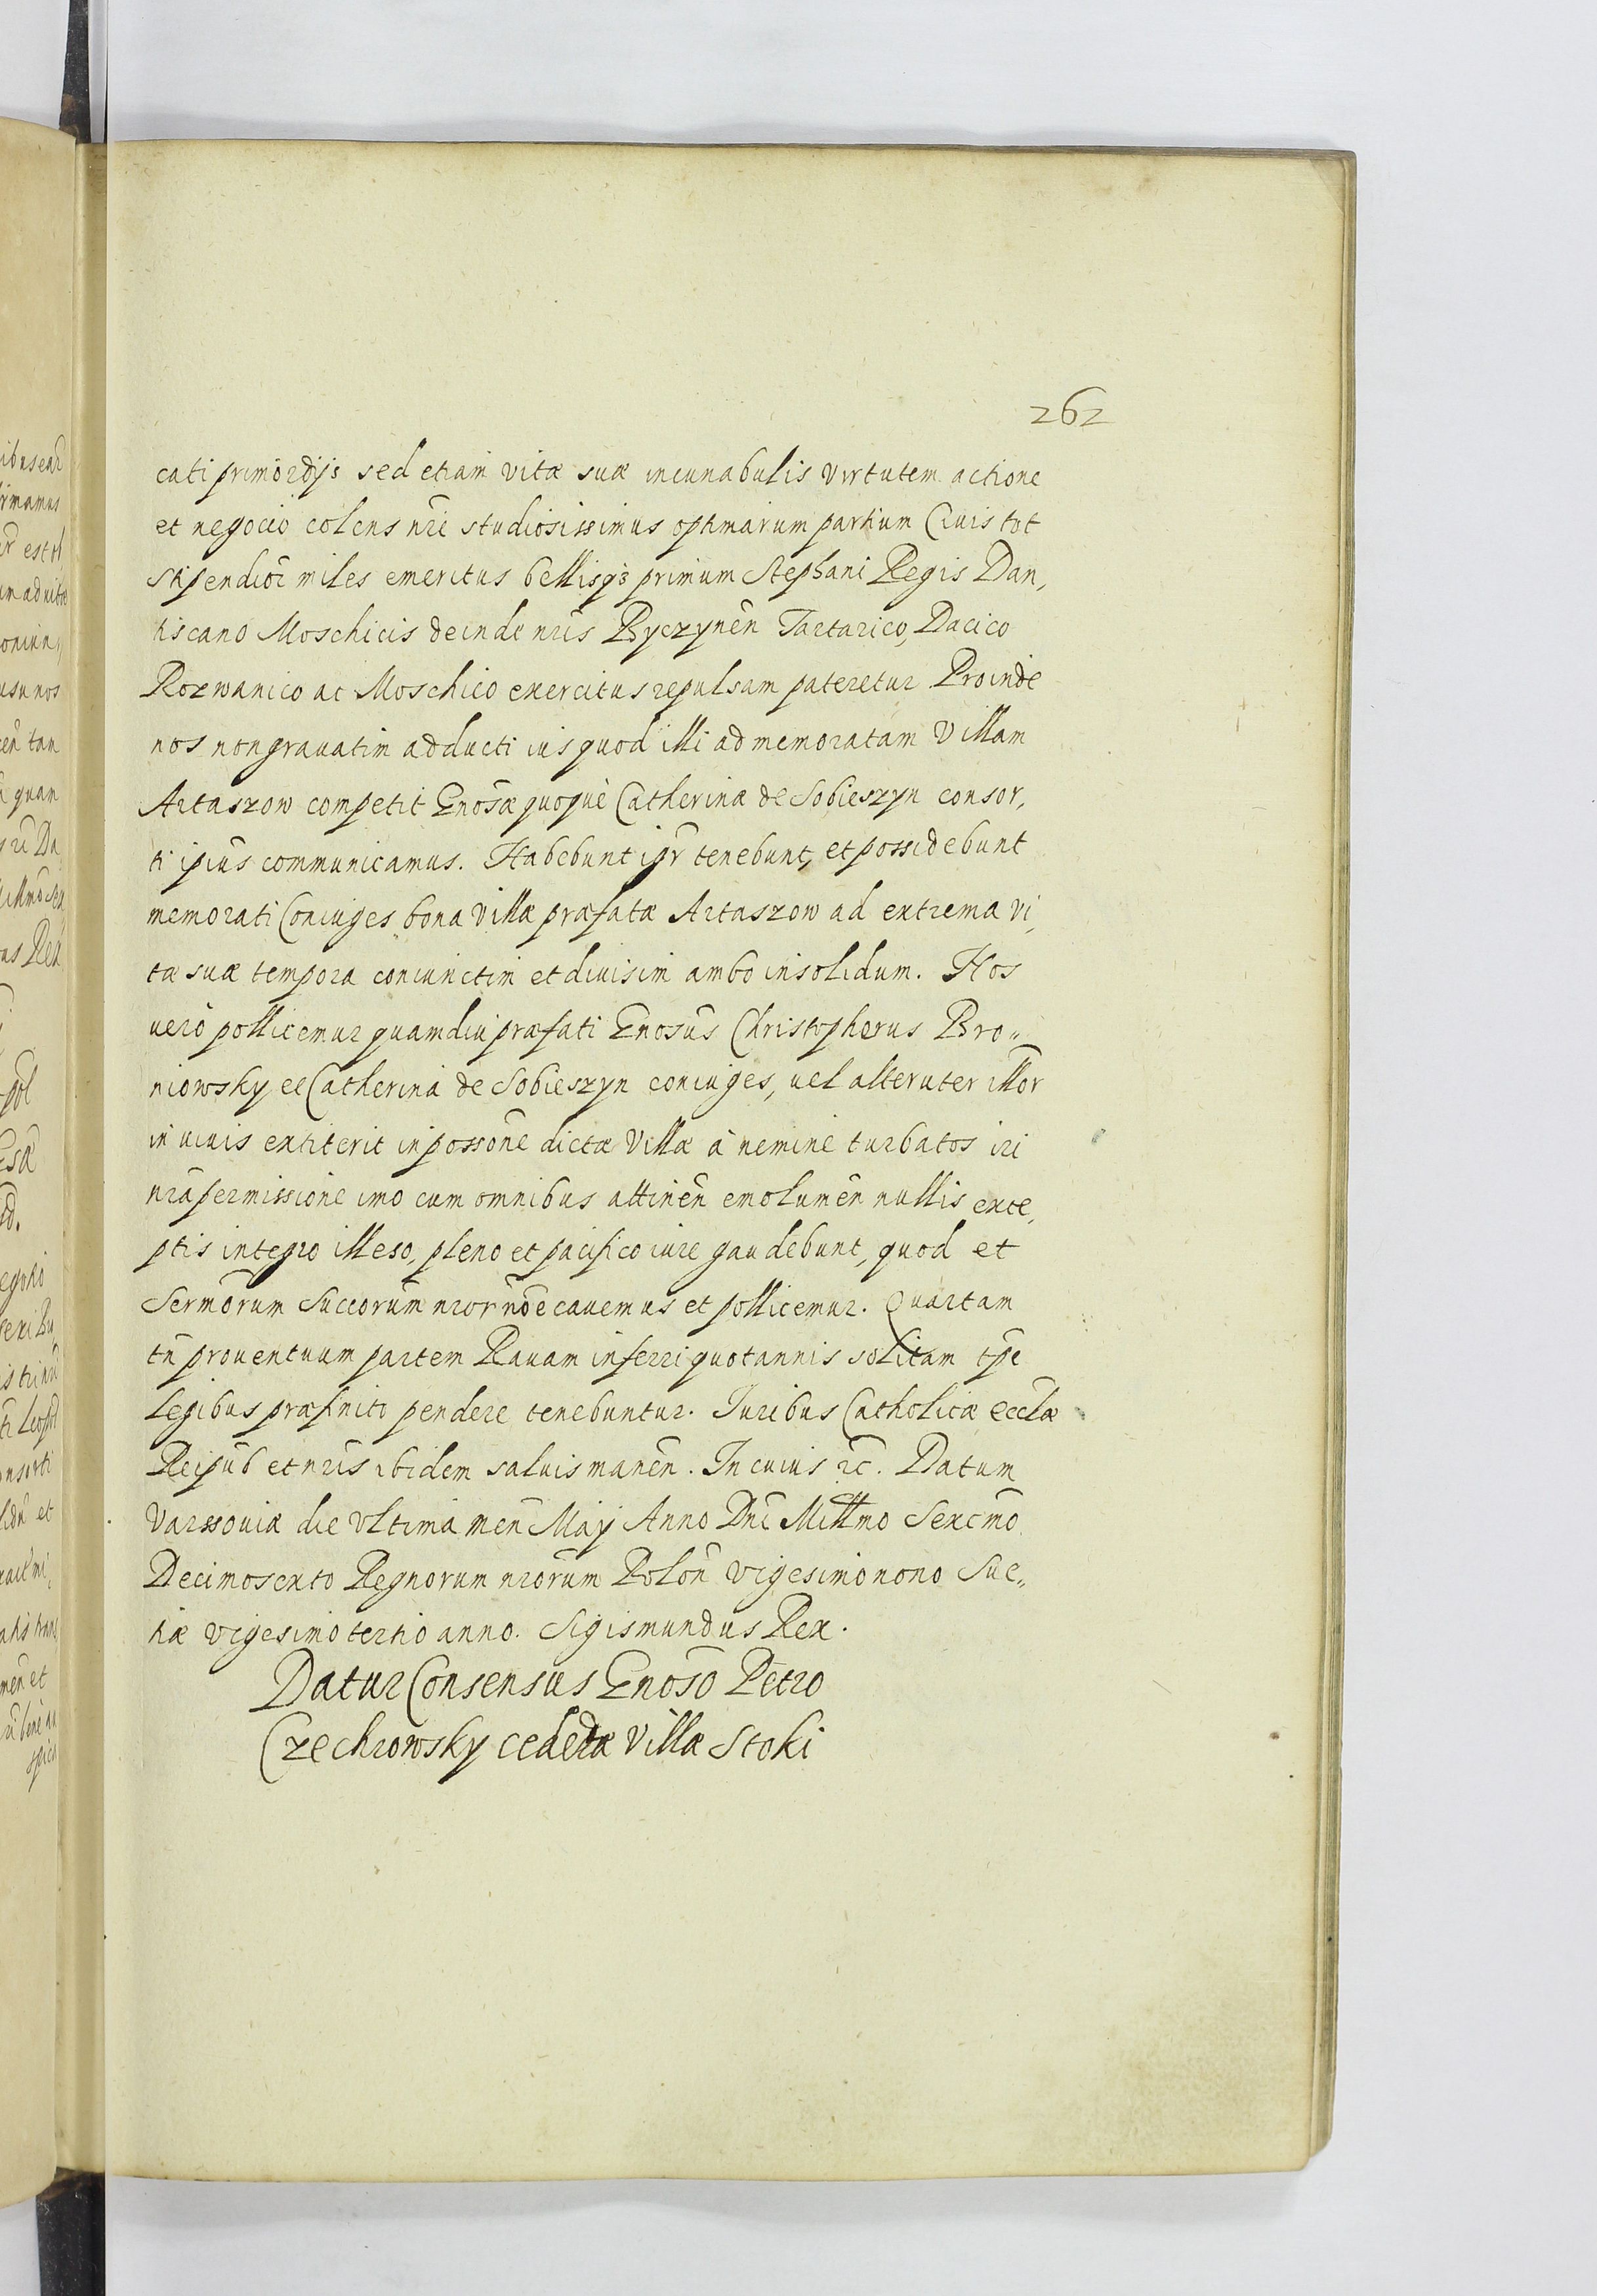 262
cati primordijs sed etiam vitæ suæ incunabulis virtutem actione
et negocio colens nr̃e studiosissimus optimarum partium Civis tot
stipendior̃ miles emeritus bellisq3 primum Stephani Regis Dan,
tiscano Moschicis deinde nr̃is Byczynen̄ Tartarico, Dacico
Rozwanico ac Moschico exercitus repulsam pateretur Proinde
nos non gravatim adducti ius quod illi ad memoratam Villam
Artaszow competit Gnosæ quoque Catherinæ de Sobieszyn consor,
ti ipius communicamus. Habebunt igr̄ tenebunt, et possidebunt
memorati Coniuges bona Villæ præfatæ Artaszow ad extrema vi,
tæ suæ tempora coniunctim et divisim ambo insolidum. Hos
uerò pollicemur quamdiu præfati Gnosus Christopherus Bro,,
niowsky et Catherina de Sobieszyn coniuges, uel alteruter illor̄
in uiuis extiterit in possone dictæ Villæ à nemine turbatos iri
nr̃a permissione imo cum omnibus attinen̄ emolumen̄ nullis exce,
ptis integro illeso, pleno et pacifico iure gaudebunt, quod et
Sermōrum Succorum nror̄ nōe cauemus et pollicemur. Quartam
tn̄ prouentuum partem Rauam inferri quotannis solitam tp̄e
legibus præfinito pendere tenebuntur. Iuribus Catholicæ eccl̄æ
Reipub̄ et nr̃is ibidem saluis manen̄. In cuius rc̄. Datum
Varssouiæ die vltima men̄ Maÿ Anno Dn̄i Mill̄mo Sexc̄mo
Decimosexto Regnorum nrorum Polon̄ vigesimo nono Sue,,
tiæ vigesimo tertio anno. Sigismundus Rex.
Datur Consensus Gnoso Petro
Czechrowsky cedendæ Villæ Stoki